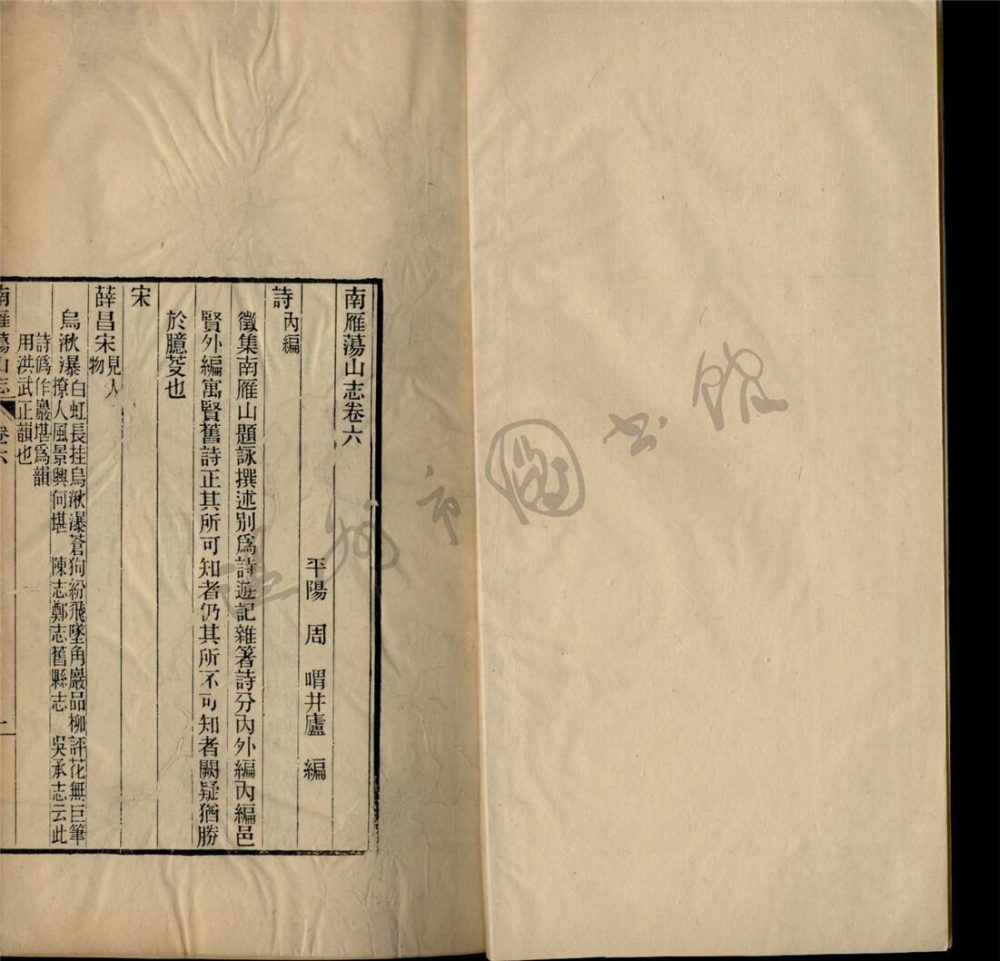 南雁蕩山志卷六
平陽 周 喟井廬 編
詩內編
徵集南雁山題詠撰述別爲詩遊記雜箸詩分內外編內編邑
賢外編寓賢舊詩正其所可知者仍其所不可知者闕疑猶勝
於臆芟也
宋
薛昌宋見人物
烏湫瀑白虹長挂烏湫瀑蒼狗紛飛墜角巖品柳評花無巨筆
撩人風景興何堪 陳志鄭志舊縣志 吳承志云此
詩爲作巖堪爲韻
用洪武正韻也
南雁蕩山志 卷六
一
市圖書館